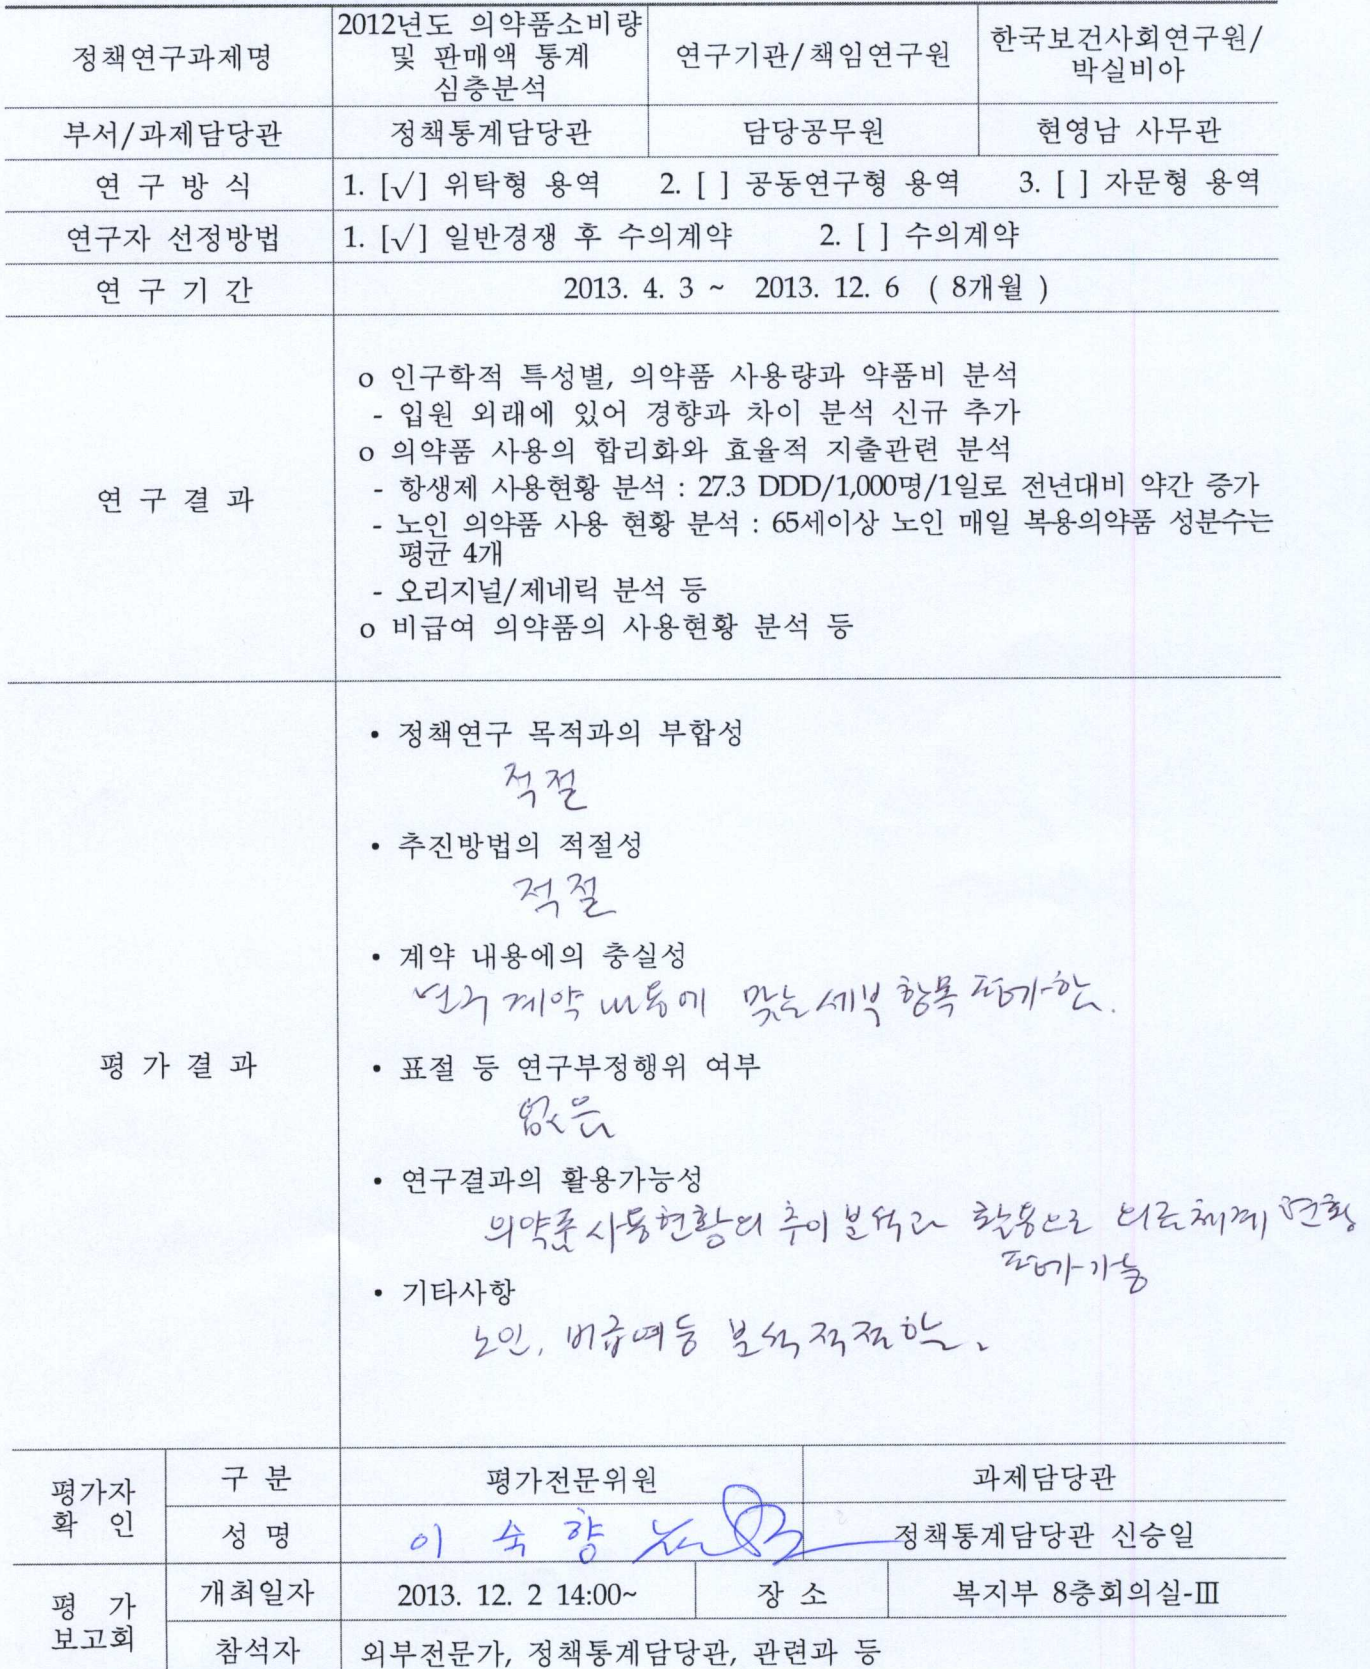 정책연구과제명
2012년도 의약품소비량
및 판매액 통계
심층분석
연구기관/책임연구원
한국보건사회연구원/
박실비아
부서/과제담당관
정책통계담당관
담당공무원
현영남 사무관
연 구 방 식
1. [√] 위탁형 용역 2. [ ] 공동연구형 용역 3. [ ] 자문형 용역
연구자 선정방법
1. [√] 일반경쟁 후 수의계약 2. [ ] 수의계약
연 구 기 간
2013. 4. 3 ~ 2013. 12. 6 ( 8개월 )
연 구 결 과
o 인구학적 특성별, 의약품 사용량과 약품비 분석
- 입원 외래에 있어 경향과 차이 분석 신규 추가
o 의약품 사용의 합리화와 효율적 지출관련 분석
- 항생제 사용현황 분석 : 27.3 DDD/1,000명/1일로 전년대비 약간 증가
- 노인 의약품 사용 현황 분석 : 65세이상 노인 매일 복용의약품 성분수는
평균 4개
- 오리지널/제네릭 분석 등
o 비급여 의약품의 사용현황 분석 등
평 가 결 과
• 정책연구 목적과의 부합성
적절
• 추진방법의 적절성
적절
• 계약 내용에의 충실성
연구 계약 내용에 맞는 세부 항목 평가함.
• 표절 등 연구부정행위 여부
없음
• 연구결과의 활용가능성
의약품 사용현황의 추이 분석과 활용으로 의료체계 현황
평가 가능
• 기타사항
노인, 비급여 등 분석 적절함.
평가자
확 인
구 분
평가전문위원
과제담당관
성 명
이 숙 향
정책통계담당관 신승일
평 가
보고회
개최일자
2013. 12. 2 14:00~
장 소
복지부 8층회의실-Ⅲ
참석자
외부전문가, 정책통계담당관, 관련과 등